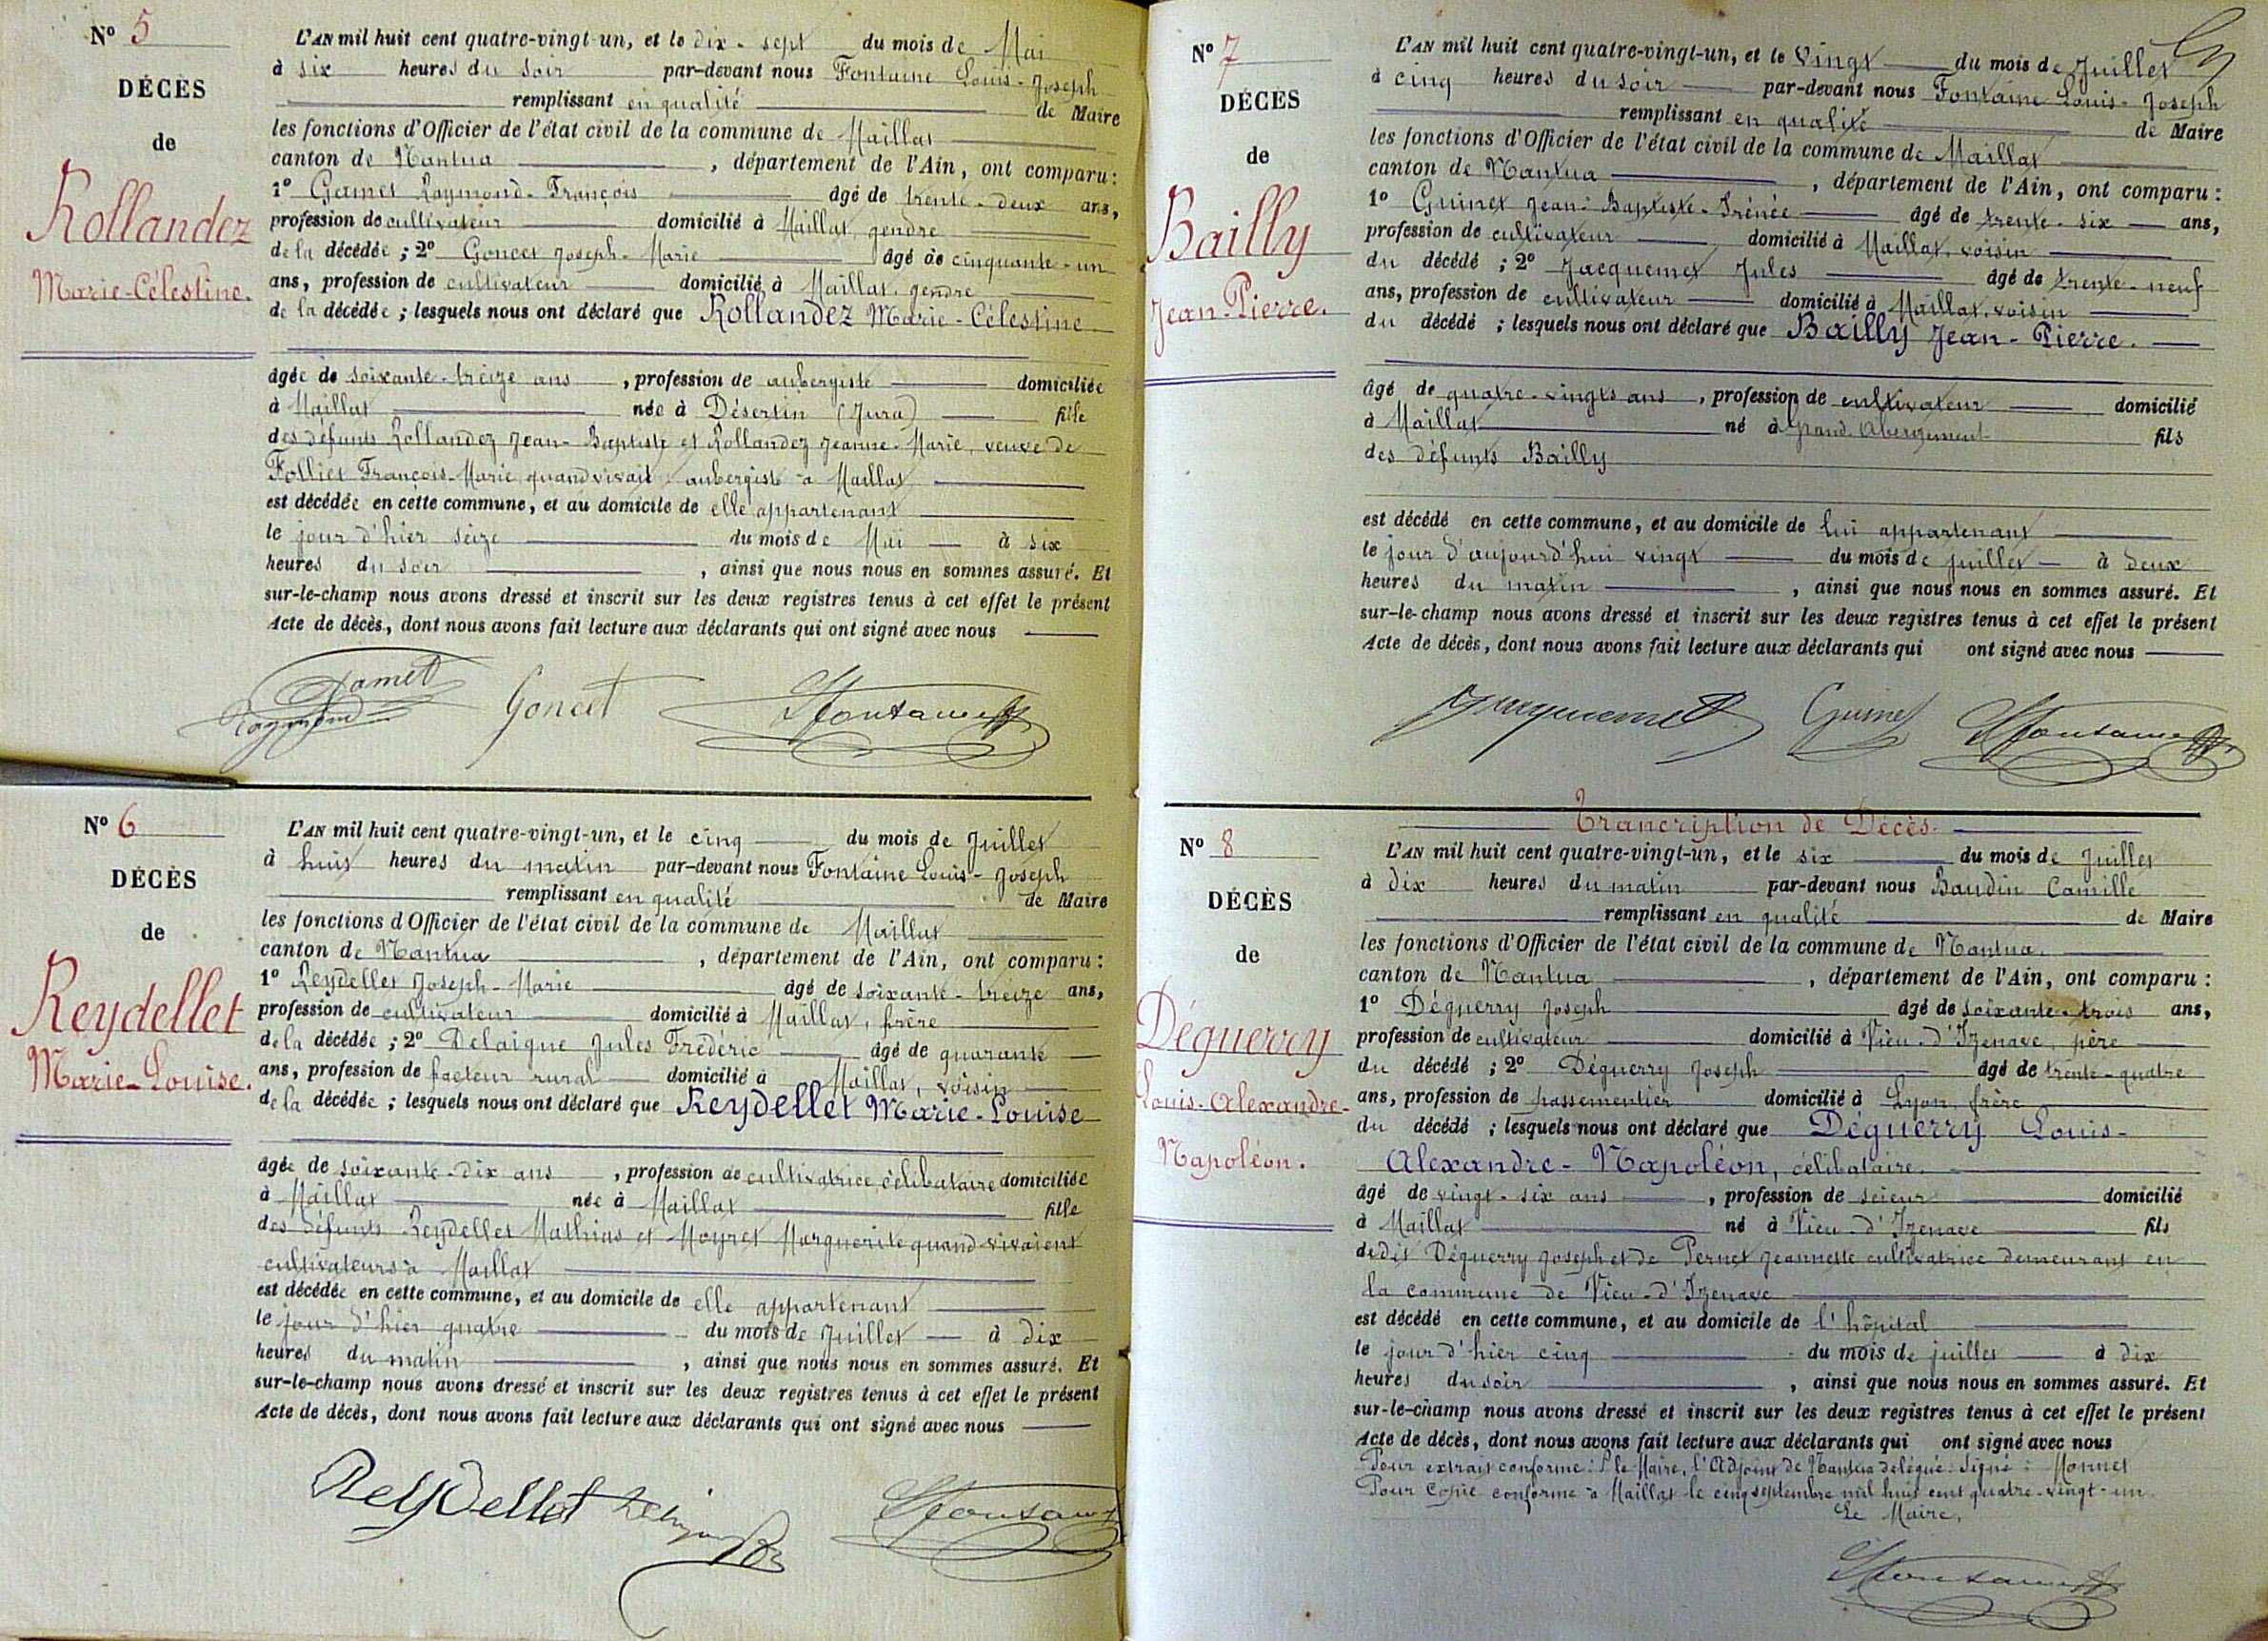 N° 5
DÉCÈS
de
Rollandez
Marie-Célestine.
L'AN mil huit cent quatre-vingt-un, et le dix-sept du mois de Mai
à six heures du soir par-devant nous Fontaine Louis-Joseph
remplissant en qualité de Maire
les fonctions d'Officier de l'état civil de la commune de Maillat
canton de Nantua, département de l'Ain, ont comparu:
1° Raymond-François âgé de trente-deux ans,
profession de cultivateur domicilié à Maillat, gendre
de la décédée; 2° Goncet Joseph-Marie âgé de cinquante-un
ans, profession de cultivateur domicilié à Maillat, gendre
de la décédée; lesquels nous ont déclaré que Rollandez Marie-Célestine
âgée de soixante-treize ans, profession de aubergiste domiciliée
à Maillat née à Désertin (Jura) fille
des défunts Rollandez Jean-Baptiste et Rollandez Jeanne-Marie, veuve de
Folliet François-Marie, quand vivait aubergiste à Maillat
est décédée en cette commune, et au domicile de elle appartenant
le jour d'hier seize du mois de Mai à six
heures du soir, ainsi que nous nous en sommes assuré. Et
sur-le-champ nous avons dressé et inscrit sur les deux registres tenus à cet effet le présent
Acte de décès, dont nous avons fait lecture aux déclarants qui ont signé avec nous
Raymond Goncet Fontaine
N° 6
DÉCÈS
de
Reydellet
Marie-Louise.
L'AN mil huit cent quatre-vingt-un, et le cinq du mois de Juillet
à huit heures du matin par-devant nous Fontaine Louis-Joseph
remplissant en qualité de Maire
les fonctions d'Officier de l'état civil de la commune de Maillat
canton de Nantua, département de l'Ain, ont comparu:
1° Reydellet Joseph-Marie âgé de soixante-treize ans,
profession de cultivateur domicilié à Maillat, frère
de la décédée; 2° Delaigue Jules Frédéric âgé de quarante
ans, profession de facteur rural domicilié à Maillat, voisin
de la décédée; lesquels nous ont déclaré que Reydellet Marie-Louise
âgée de soixante-dix ans, profession de cultivatrice, célibataire domiciliée
à Maillat née à Maillat fille
des défunts Reydellet Mathias et Moyret Marguerite quand vivaient
cultivateurs à Maillat
est décédée en cette commune, et au domicile de elle appartenant
le jour d'hier quatre du mois de Juillet à dix
heures du matin, ainsi que nous nous en sommes assuré. Et
sur-le-champ nous avons dressé et inscrit sur les deux registres tenus à cet effet le présent
Acte de décès, dont nous avons fait lecture aux déclarants qui ont signé avec nous
Reydellet Fontaine
N° 7
DÉCÈS
de
Bailly
Jean-Pierre.
L'AN mil huit cent quatre-vingt-un, et le vingt du mois de Juillet
à cinq heures du soir par-devant nous Fontaine Louis-Joseph
remplissant en qualité de Maire
les fonctions d'Officier de l'état civil de la commune de Maillat
canton de Nantua, département de l'Ain, ont comparu:
1° Guinet Jean-Baptiste-Irénée âgé de trente-six ans,
profession de cultivateur domicilié à Maillat, voisin
du décédé; 2° Jacquemet Jules âgé de trente-neuf
ans, profession de cultivateur domicilié à Maillat, voisin
du décédé; lesquels nous ont déclaré que Bailly Jean-Pierre.
âgé de quatre-vingts ans, profession de cultivateur domicilié
à Maillat né à Grand Abergement fils
des défunts Bailly
est décédé en cette commune, et au domicile de lui appartenant
le jour d'aujourd'hui vingt du mois de juillet à deux
heures du matin, ainsi que nous nous en sommes assuré. Et
sur-le-champ nous avons dressé et inscrit sur les deux registres tenus à cet effet le présent
Acte de décès, dont nous avons fait lecture aux déclarants qui ont signé avec nous
Jacquemet Guinet Fontaine
Trancription de Décès.
N° 8
DÉCÈS
de
Déguerry
Louis-Alexandre-
Napoléon.
L'AN mil huit cent quatre-vingt-un, et le six du mois de Juillet
à dix heures du matin par-devant nous Baudin Camille
remplissant en qualité de Maire
les fonctions d'Officier de l'état civil de la commune de Nantua.
canton de Nantua, département de l'Ain, ont comparu:
1° Déguerry Joseph âgé de soixante-trois ans,
profession de cultivateur domicilié à Vieu-d'Izenave, père
du décédé; 2° Déguerry Joseph âgé de trente-quatre
ans, profession de passementier domicilié à Lyon, frère
du décédé; lesquels nous ont déclaré que Déguerry Louis-
Alexandre-Napoléon, célibataire.
âgé de vingt-six ans, profession de scieur domicilié
à Maillat né à Vieu-d'Izenave fils
de dit Déguerry Joseph et de Pernet Jeannette cultivatrice demeurant en
la commune de Vieu-d'Izenave
est décédé en cette commune, et au domicile de l'hôpital
le jour d'hier cinq du mois de juillet à dix
heures du soir, ainsi que nous nous en sommes assuré. Et
sur-le-champ nous avons dressé et inscrit sur les deux registres tenus à cet effet le présent
Acte de décès, dont nous avons fait lecture aux déclarants qui ont signé avec nous
Pour extrait conforme: P. le Maire, l'Adjoint de Nantua délégué. Signé: Monnet
Pour Copie conforme à Maillat le cinq septembre mil huit cent quatre-vingt-un.
Le Maire,
Fontaine